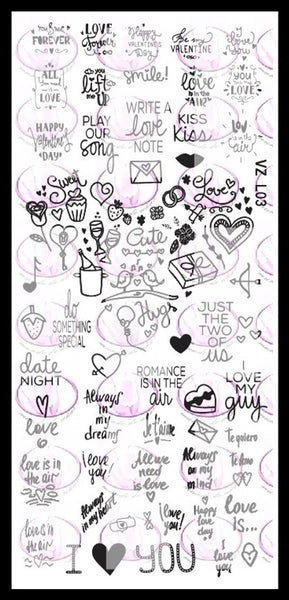 You & Me
FOREVER
LOVE
Forever
Happy
VALENTINE'S
DAY
Be my
VALENTINE
ALL
You
NEED IS
LOVE
you
lift
me
UP
smile!
love
is in the
AIR
you
ARE
LOVE
HAPPY
Valentine's
DAY!
PLAY
OUR
song
WRITE A
love
NOTE
KISS
Kiss
love
is in
the air
VZ_L03
Sweet
Love
Cute
Hugs
do
SOMETHING
SPECIAL
JUST
THE TWO
OF
us
date
NIGHT
ROMANCE
IS IN THE
air
I
LOVE
MY
guy
love
Always
in my
dreams
Je t'aime
Te quiero
Te amo
love is in
the air
i love
you!
All we
need is
love
Always
on my
mind
Always
in my heart
i love
you!
Happy
love
day
LOVE
IS...
love is in
the air
I
love
you
I YOU